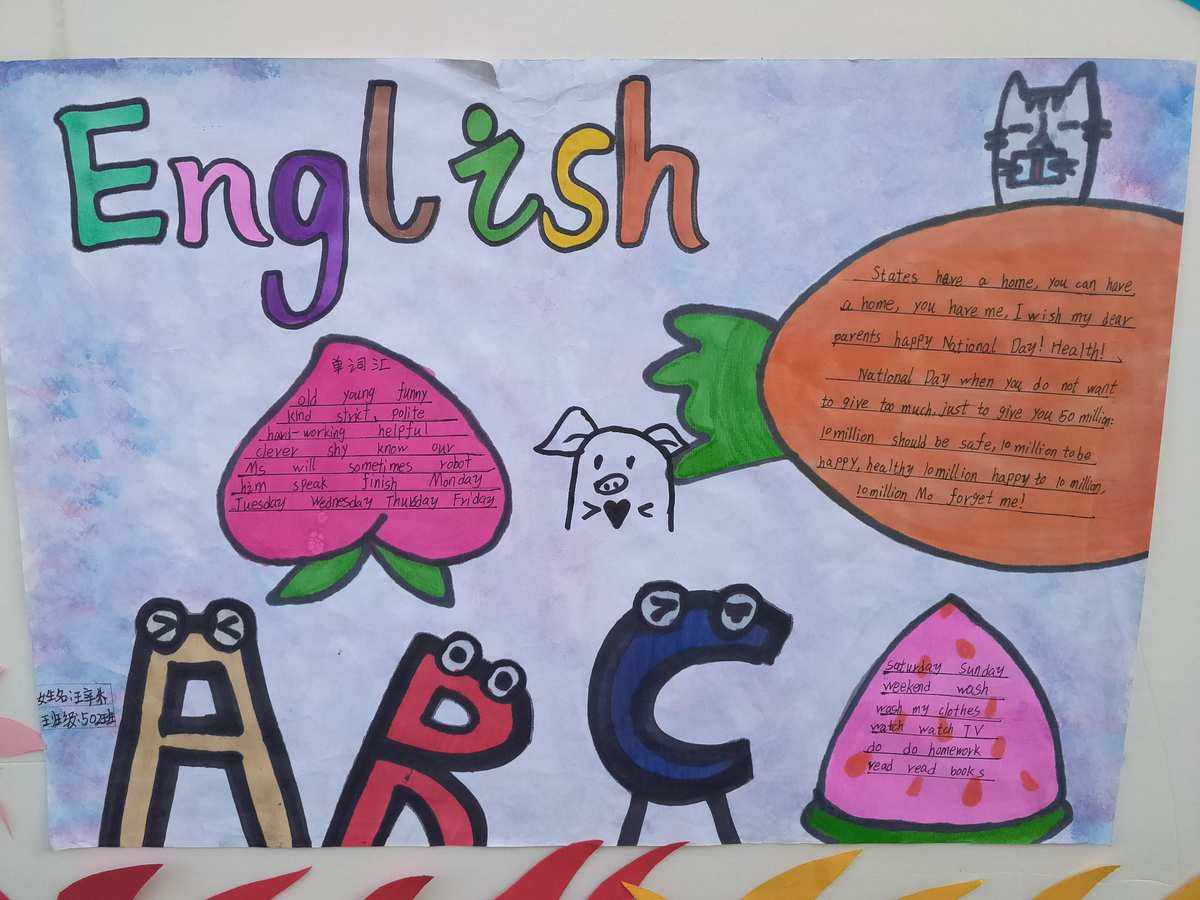 English
States have a home, you can have
a home, you have me, I wish my dear
parents happy National Day! Health!
National Day when you do not want
to give too much, just to give you 50 million:
10 million should be safe, 10 million to be
happy, healthy 10 million happy to 10 million,
10 million Mo forget me!
单词汇
old young funny
kind strict, polite
hard-working helpful
clever shy know our
Ms will sometimes robot
him speak finish Monday
Tuesday Wednesday Thursday Friday
ABC
姓名:汪
班级:502班
Saturday Sunday
weekend wash
wash my clothes
watch watch TV
do do homework
read read books